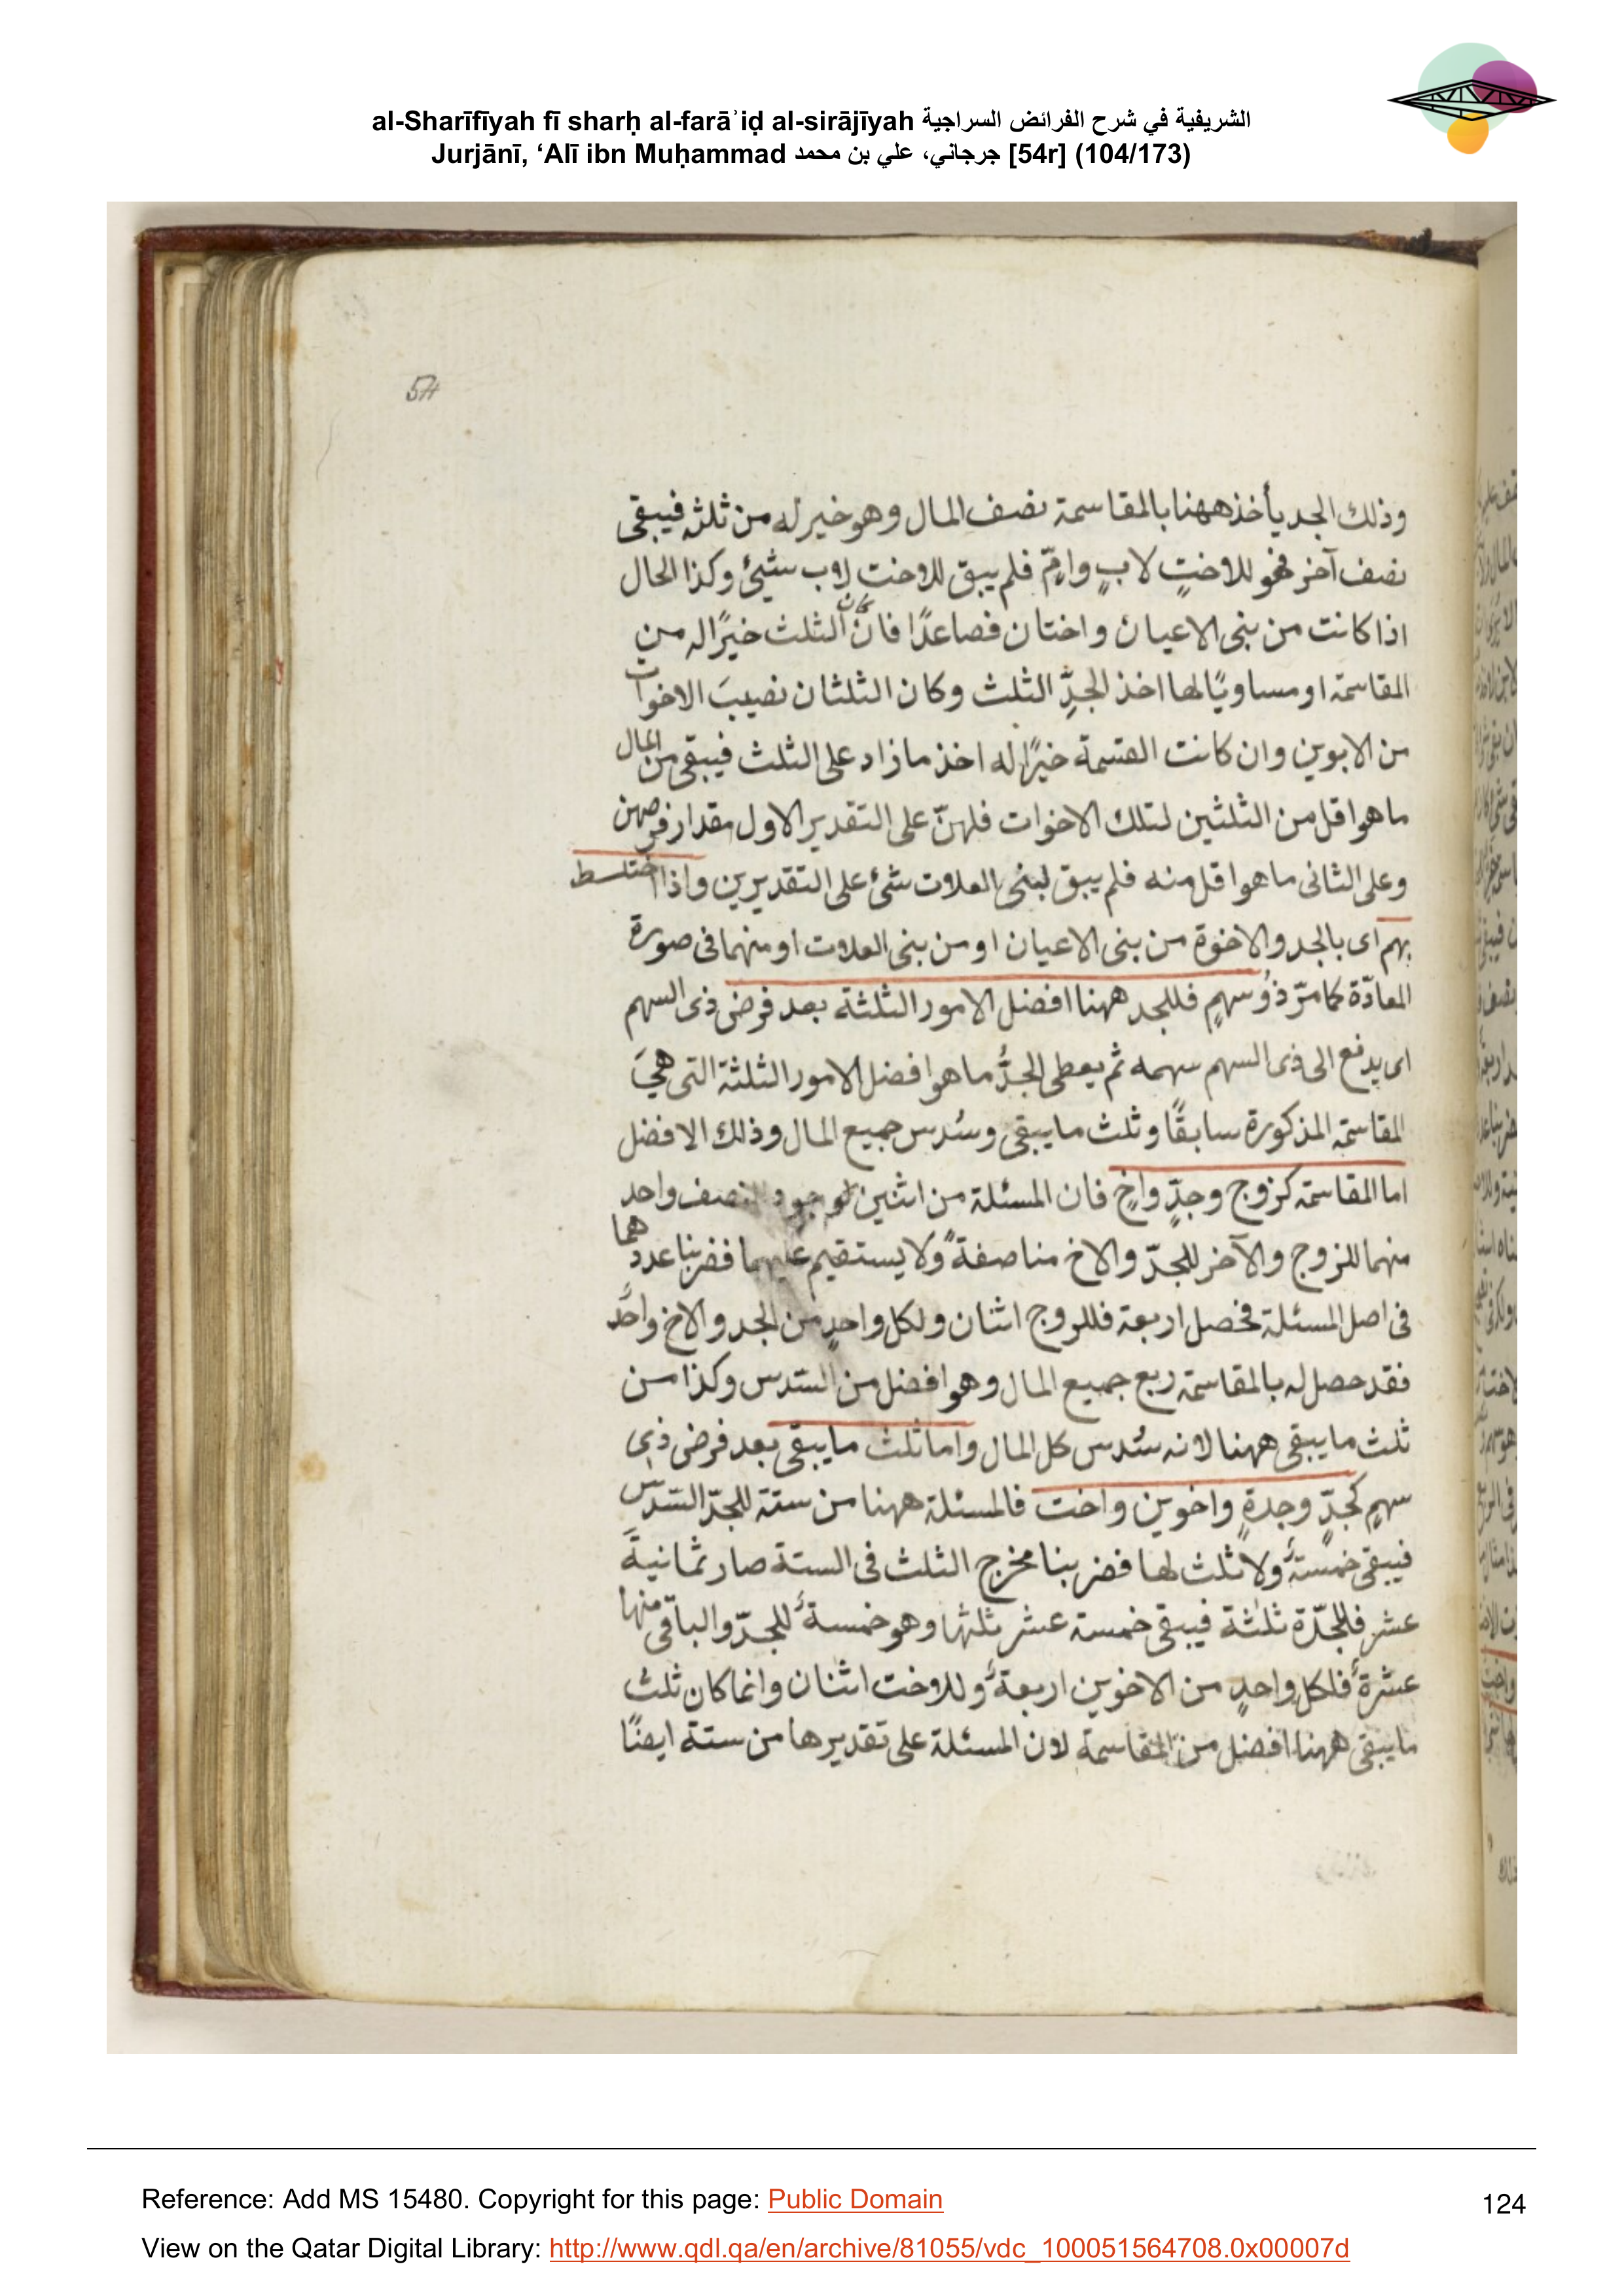 al-Sharīfīyah fī sharḥ al-farāʾiḍ al-sirājīyah الشريفية في شرح الفرائض السراجية
Jurjānī, ‘Alī ibn Muḥammad جرجاني، علي بن محمد [54r] (104/173)
54
وذلك الجد يأخذ ههنا بالمقاسمة نصف المال وهو خير له من ثلثه فيبقى
نصف آخر فهو للاختٍ لابٍ وامٍّ فلم يبق للاخت لاب شيئ وكذا الحال
اذا كانت من بنى الاعيان واختان فصاعدًا فان كان الثلث خيرًا له من
المقاسمة او مساويًا لها اخذ الجدِّ الثلث وكان الثلثان نصيبَ الاخوات
من الابوين وان كانت القسمة خيرًا له اخذ ما زاد على الثلث فيبقى من المال
ما هو اقل من الثلثين لتلك الاخوات فلهنّ على التقدير الاول مقدار فرضهن
وعلى الثانى ما هو اقل منه فلم يبق لبنى العلات شئ على التقديرين واذا اختلط
بهم اى بالجد والاخوة من بنى الاعيان او من بنى العلات او منهما فى صورة
المعادّة كما مرّ ذو سهمٍ فللجد ههنا افضل الامور الثلثة بعد فرض ذى السهم
اى يدفع الى ذى السهم سهمه ثم يعطى الجدُّ ما هو افضل الامور الثلثة التى هىَ
المقاسمة المذكورة سابقًا وثلث ما يبقى وسُدس جميع المال وذلك الافضل
اما المقاسمة كزوج وجدٍّ واخٍ فان المسئلة من اثنين لوجود النصف واحد
منهما للزوج والآخر للجدّ والاخ مناصفةً ولا يستقيم عليهما فضربنا عددهما
فى اصل المسئلة فحصل اربعة فللزوج اثنان ولكل واحدٍ من الجد والاخ واحدٌ
فقد حصل له بالمقاسمة ربع جميع المال وهو افضل من السّدس وكذا من
ثلث ما يبقى ههنا لانه سُدس كل المال واما ثلث ما يبقى بعد فرض ذى
سهمٍ كجدٍّ وجدةٍ واخوين واخت فالمسئلة ههنا من ستة للجدّ السّدس
فيبقى خمسةٌ ولا ثلث لها فضربنا مخرج الثلث فى الستة صار ثمانيةَ
عشر فللجدّة ثلثة فيبقى خمسة عشر ثلثها وهو خمسةٌ للجدّ والباقى منها
عشرةٌ فلكل واحدٍ من الاخوين اربعةٌ وللاخت اثنان وانما كان ثلث
ما يبقى ههنا افضل من المقاسمة لان المسئلة على تقديرها من ستة ايضًا
Reference: Add MS 15480. Copyright for this page: Public Domain
124
View on the Qatar Digital Library: http://www.qdl.qa/en/archive/81055/vdc_100051564708.0x00007d